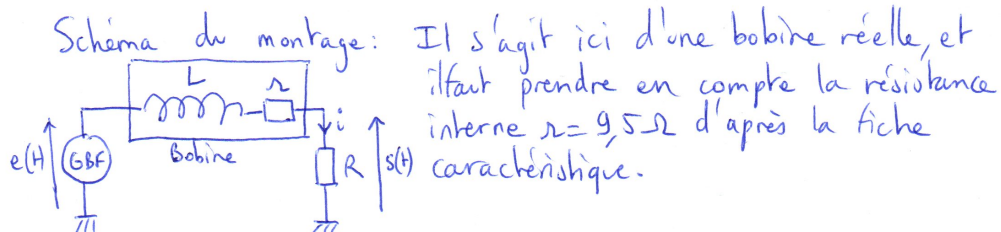 Schéma du montage: Il s'agit ici d'une bobine réelle, et
il faut prendre en compte la résistance
interne r = 9,5 Ω d'après la fiche
caractéristique.
L r
i
Bobine
e(t) GBF R s(t)